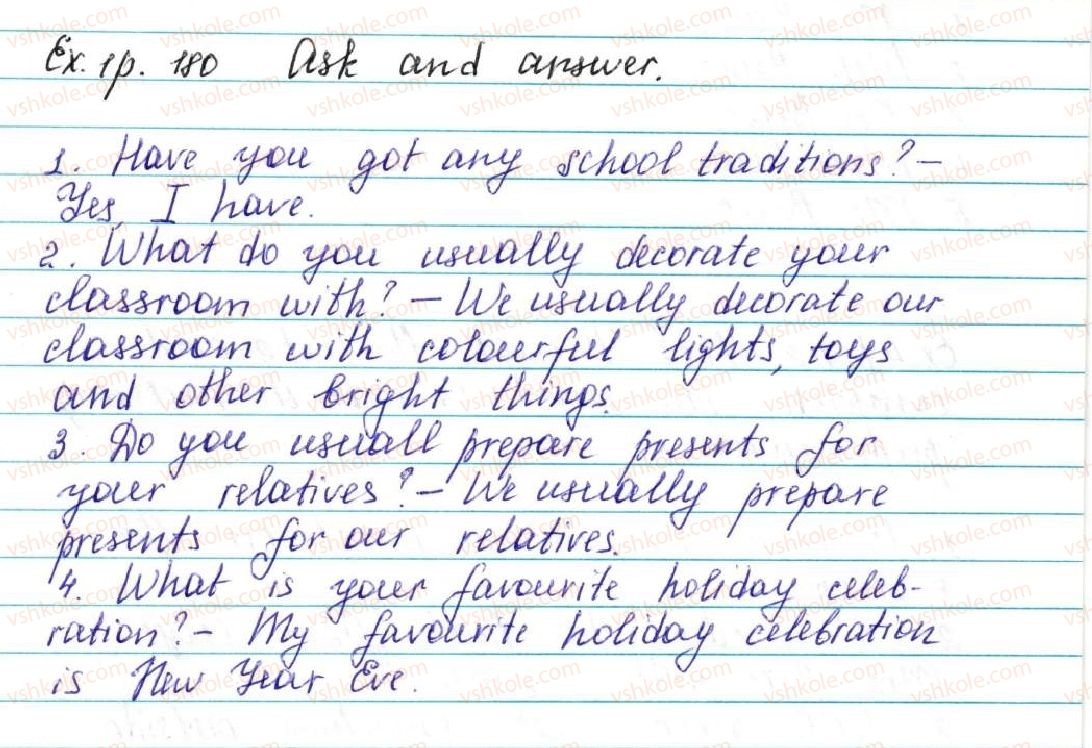 Ex. 1 p. 180 Ask and answer.
1. Have you got any school traditions? –
Yes, I have.
2. What do you usually decorate your
classroom with? – We usually decorate our
classroom with colourful lights, toys
and other bright things.
3. Do you usuall prepare presents for
your relatives? – We usually prepare
presents for our relatives.
4. What is your favourite holiday celeb-
ration? – My favourite holiday celebration
is New Year Eve.